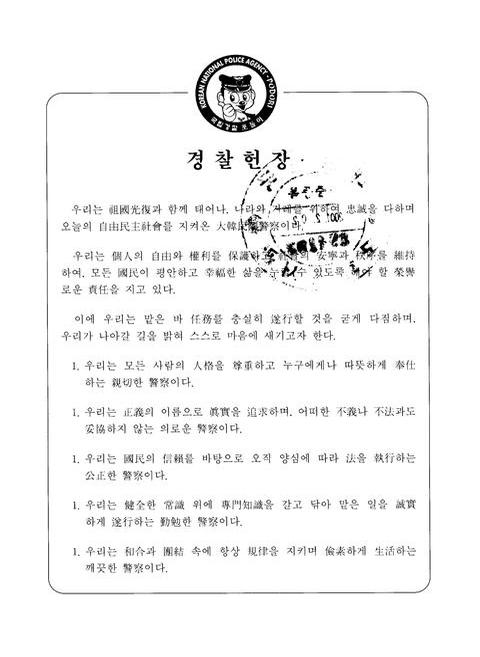 KOREAN NATIONAL POLICE AGENCY-PODORI
경찰헌장
우리는 祖國光復과 함께 태어나, 나라와 겨레를 위하여 忠誠을 다하며
오늘의 自由民主社會를 지켜온 大韓民國警察이다.
우리는 個人의 自由와 權利를 保護하고 社會의 安寧과 秩序를 維持
하여, 모든 國民이 평안하고 幸福한 삶을 누릴 수 있도록 해야 할 榮譽
로운 責任을 지고 있다.
이에 우리는 맡은 바 任務를 충실히 遂行할 것을 굳게 다짐하며,
우리가 나아갈 길을 밝혀 스스로 마음에 새기고자 한다.
1. 우리는 모든 사람의 人格을 尊重하고 누구에게나 따뜻하게 奉仕
하는 親切한 警察이다.
1. 우리는 正義의 이름으로 眞實을 追求하며, 어떠한 不義나 不法과도
妥協하지 않는 의로운 警察이다.
1. 우리는 國民의 信賴를 바탕으로 오직 양심에 따라 法을 執行하는
公正한 警察이다.
1. 우리는 健全한 常識 위에 專門知識을 갈고 닦아 맡은 일을 誠實
하게 遂行하는 勤勉한 警察이다.
1. 우리는 和合과 團結 속에 항상 規律을 지키며 儉素하게 生活하는
깨끗한 警察이다.